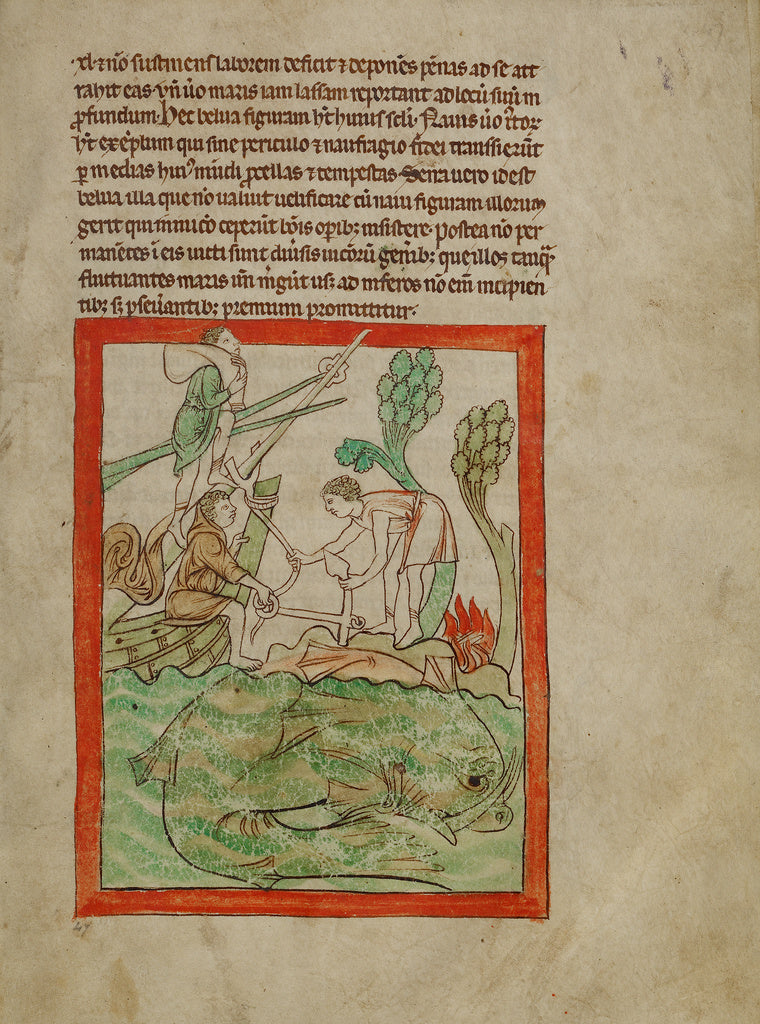 xl· ⁊ nõ sustinens laborem deficit ⁊ deponẽs pẽnas ad se att
rahit eas· vñ ũo maris iam lassam reportant ad locũ suũ in
ꝓfundum· hec belua figuram ht̃ huius scl̃i· Nauis ũo
ht̃ exẽplum qui sine periculo ⁊ naufragio fidei transsierũt
ꝑ medias huiꝰ mũdi ꝓcellas ⁊ tempestas· Serra uero id est
belua illa que nõ ualuit uelificare cũ nauiu figuram illorum
gerit qui innicio ceperũt bõis oꝑibꝫ insistere· postea nõ per
manẽtes ĩ eis uicti sunt diũsis uicioꝝ genẽibꝫ que illos tanqͣ
fluctuantes maris usꝫ ad inferos nõ eĩm incipien
tibꝫ sꝫ ꝑseũantibꝫ premium promittitur·
47